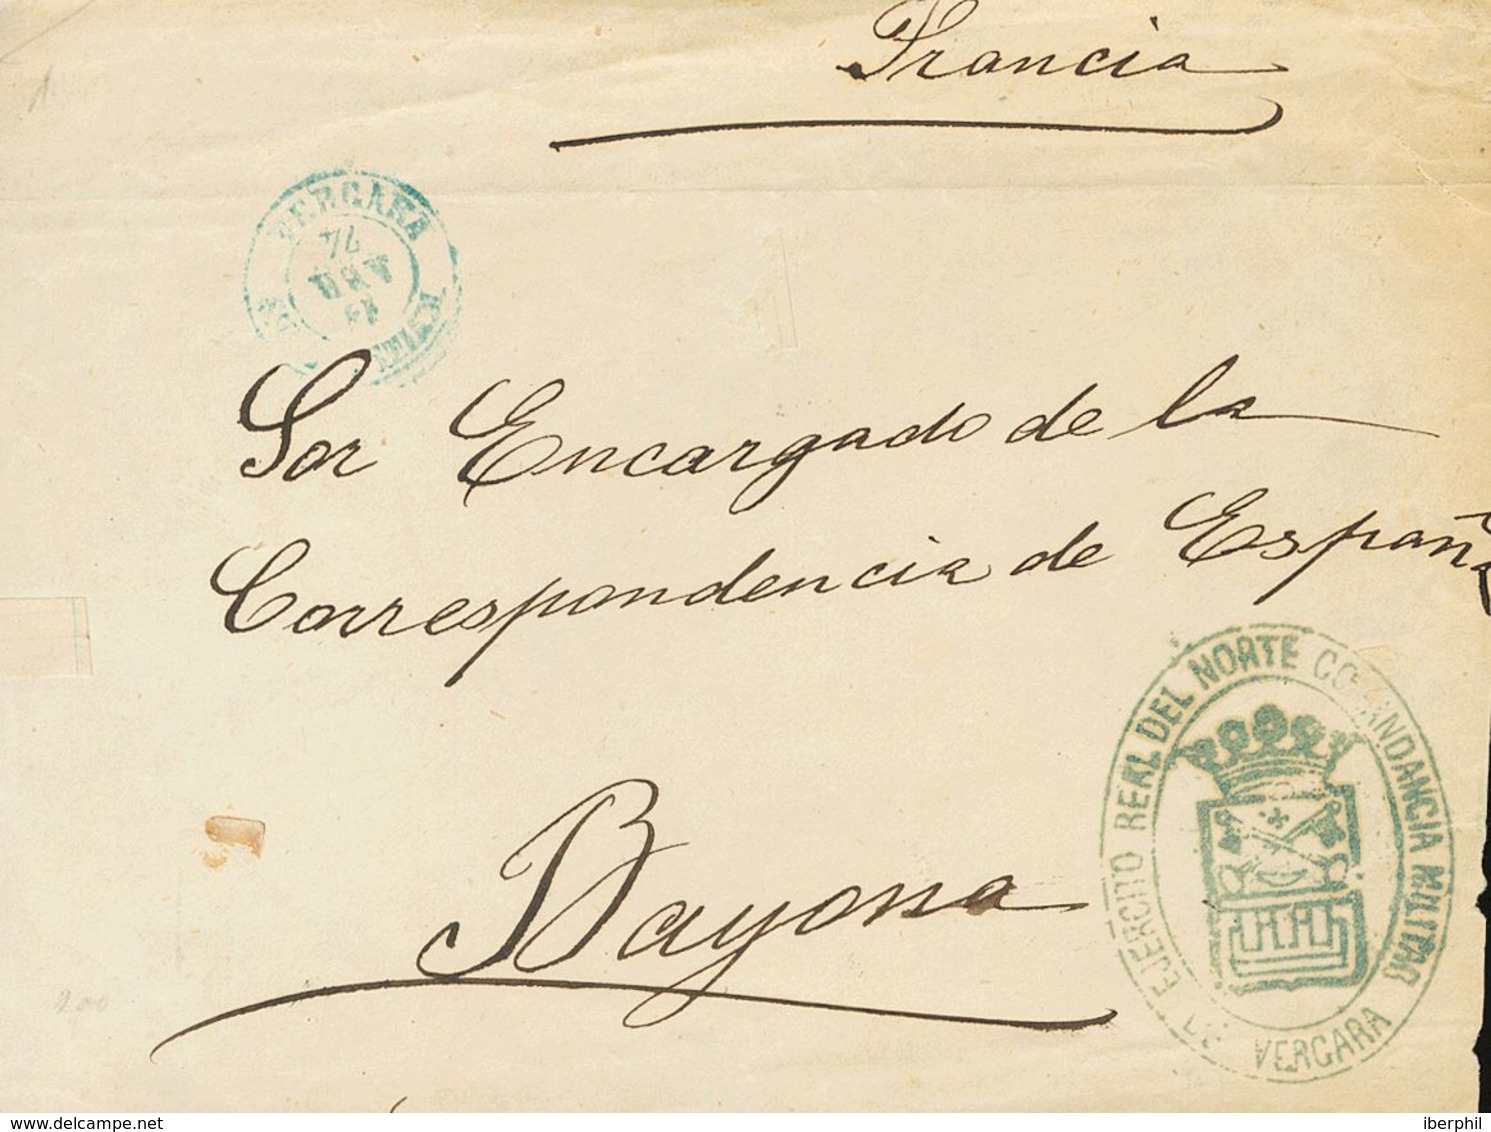 Francia
VERGARA
74
ABR
Sor Encargado de la
Correspondencia de España
Bayona
EJÉRCITO REAL DEL NORTE COMANDANCIA MILITAR
VERGARA
delcampe.net
iberphil